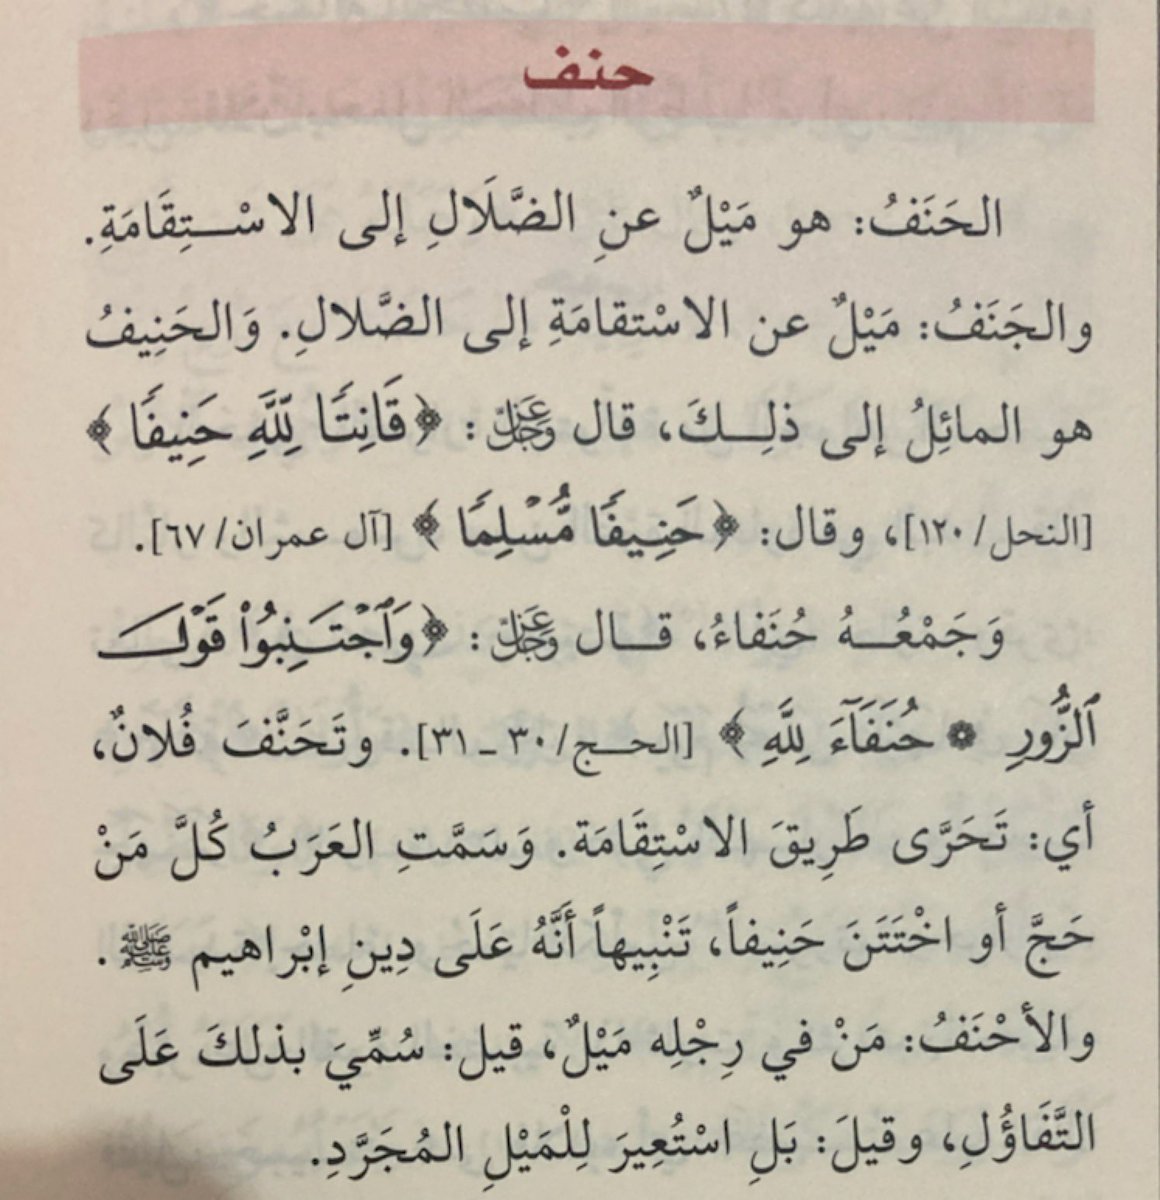 حنف
الحَنَفُ: هو مَيْلٌ عنِ الضَّلَالِ إلى الاسْـتِقَامَةِ.
والجَنَفُ: مَيْلٌ عن الاسْتقامَةِ إلى الضَّلالِ. وَالحَنِيفُ
هو المائِلُ إلى ذلِـكَ، قال عَزَّ وَجَلَّ: ﴿قَانِتًا لِّلَّهِ حَنِيفًا﴾
[النحل/١٢٠]، وقال: ﴿حَنِيفًا مُّسْلِمًا﴾ [آل عمران/٦٧].
وَجَمْعُـهُ حُنَفاءُ، قـال عَزَّ وَجَلَّ: ﴿وَٱجْتَنِبُوا۟ قَوْلَ
ٱلزُّورِ ۞ حُنَفَآءَ لِلَّهِ﴾ [الحـج/٣٠ ـ ٣١]. وتَحَنَّفَ فُلانٌ،
أي: تَحَرَّى طَرِيقَ الاسْتِقَامَة. وَسَمَّتِ العَرَبُ كُلَّ مَنْ
حَجَّ أو اخْتَتَنَ حَنِيفاً، تَنْبِيهاً أَنَّهُ عَلَى دِينِ إبْراهيم ﷺ.
والأحْنَفُ: مَنْ في رِجْلِه مَيْلٌ، قيل: سُمِّيَ بذلكَ عَلَى
التَّفَاؤُلِ، وقيلَ: بَلِ اسْتُعِيرَ لِلْمَيْلِ المُجَرَّدِ.